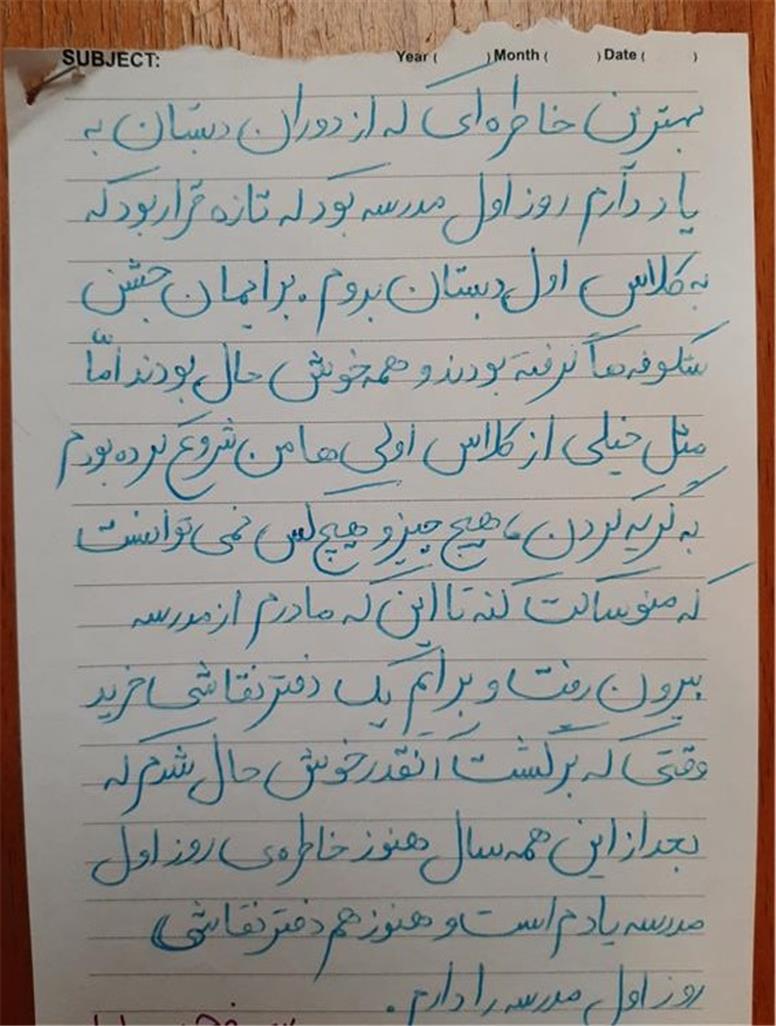 SUBJECT: Year ( ) Month ( ) Date ( )
بهترین خاطره‌ای که از دوران دبستان به
یاد دارم روز اول مدرسه بود که تازه قرار بود که
به کلاس اول دبستان بروم . برایمان جشن
شکوفه‌ها گرفته بودند و همه خوش حال بودند امّا
مثل خیلی از کلاس اولی ها من شروع کرده بودم
به گریه کردن ، هیچ چیز و هیچ کس نمی توانست
که منو ساکت کنه تا این که مادرم از مدرسه
بیرون رفت و برایم یک دفتر نقاشی خرید
وقتی که برگشت آنقدر خوش حال شدم که
بعد از این همه سال هنوز خاطره‌ی روز اول
مدرسه یادم است و هنوز هم دفتر نقاشی
روز اول مدرسه را دارم .